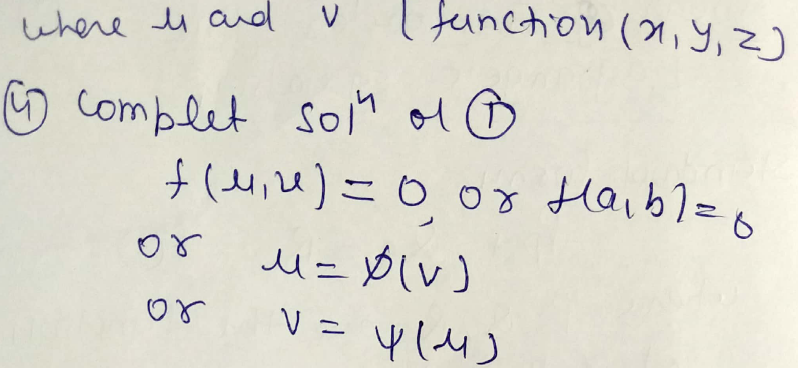 where u and v | function (x, y, z)
④ complet solⁿ of ①
f(u,v) = 0, or f(a,b) = 0
or u = φ(v)
or v = ψ(u)